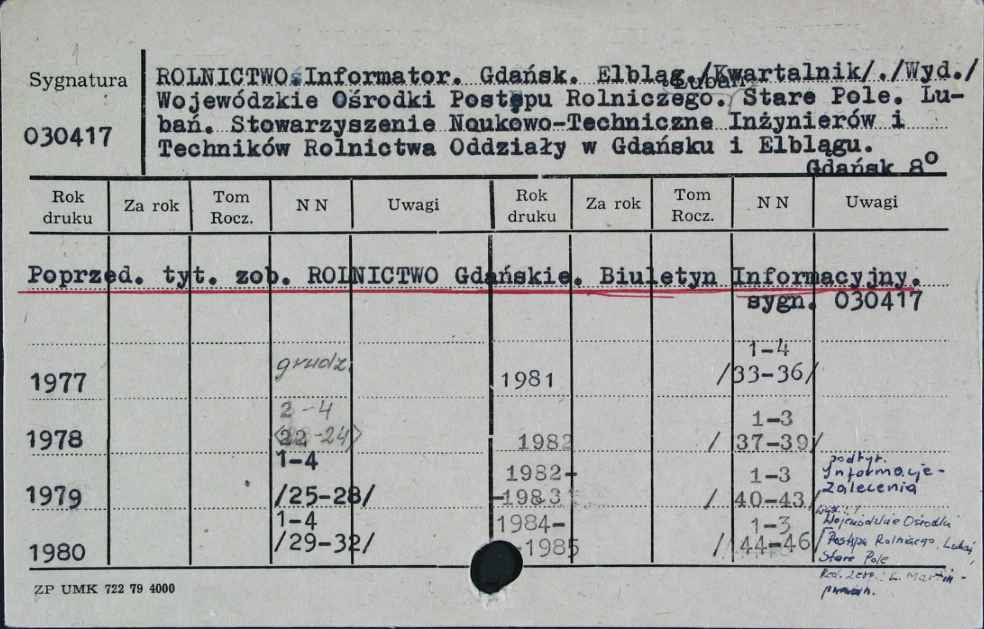 Sygnatura
030417
ROLNICTWO. Informator. Gdańsk. Elbląg./Kwartalnik/./Wyd./
Lubań
Wojewódzkie Ośrodki Postępu Rolniczego. Stare Pole. Lu-
bań. Stowarzyszenie Naukowo-Techniczne Inżynierów i
Techników Rolnictwa Oddziały w Gdańsku i Elblągu.
Gdańsk 8°
Rok druku Za rok Tom Rocz. N N Uwagi Rok druku Za rok Tom Rocz. N N Uwagi
Poprzed. tyt. zob. ROLNICTWO Gdańskie. Biuletyn Informacyjny.
sygn. 030417
1977 grudz. 1981 1-4 /33-36/
1978 2-4 <22-24> 1982 1-3 /37-39/
1979 1-4 /25-28/ 1982-1983 1-3 /40-43/ podtyt. Informacje-Zalecenia
1980 1-4 /29-32/ 1984-1985 1-3 /44-46/ Wojewódzkie Ośrodki Postępu Rolniczego, Stare Pole
ZP UMK 722 79 4000